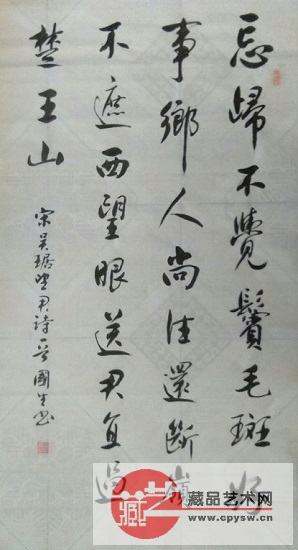 忘歸不覺鬢毛斑好
事鄉人尚往還斷嶺
不遮西望眼送君直過
楚王山
宋吳琚送君詩一首國生書
藏品艺术网
www.cpysw.com